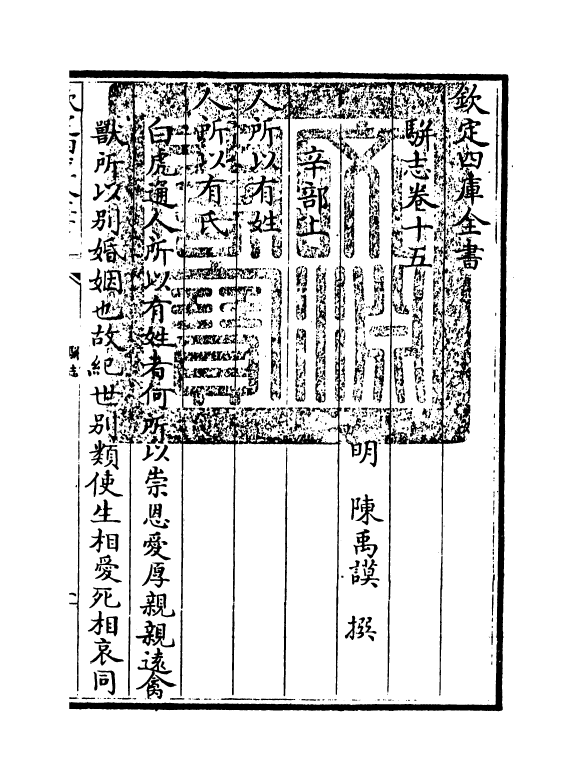 欽定四庫全書
駢志卷十五
明 陳禹謨 撰
辛部上
人所以有姓
人所以有氏
白虎通人所以有姓者何所以崇恩愛厚親親遠禽
獸所以别婚姻也故紀世别類使生相愛死相哀同